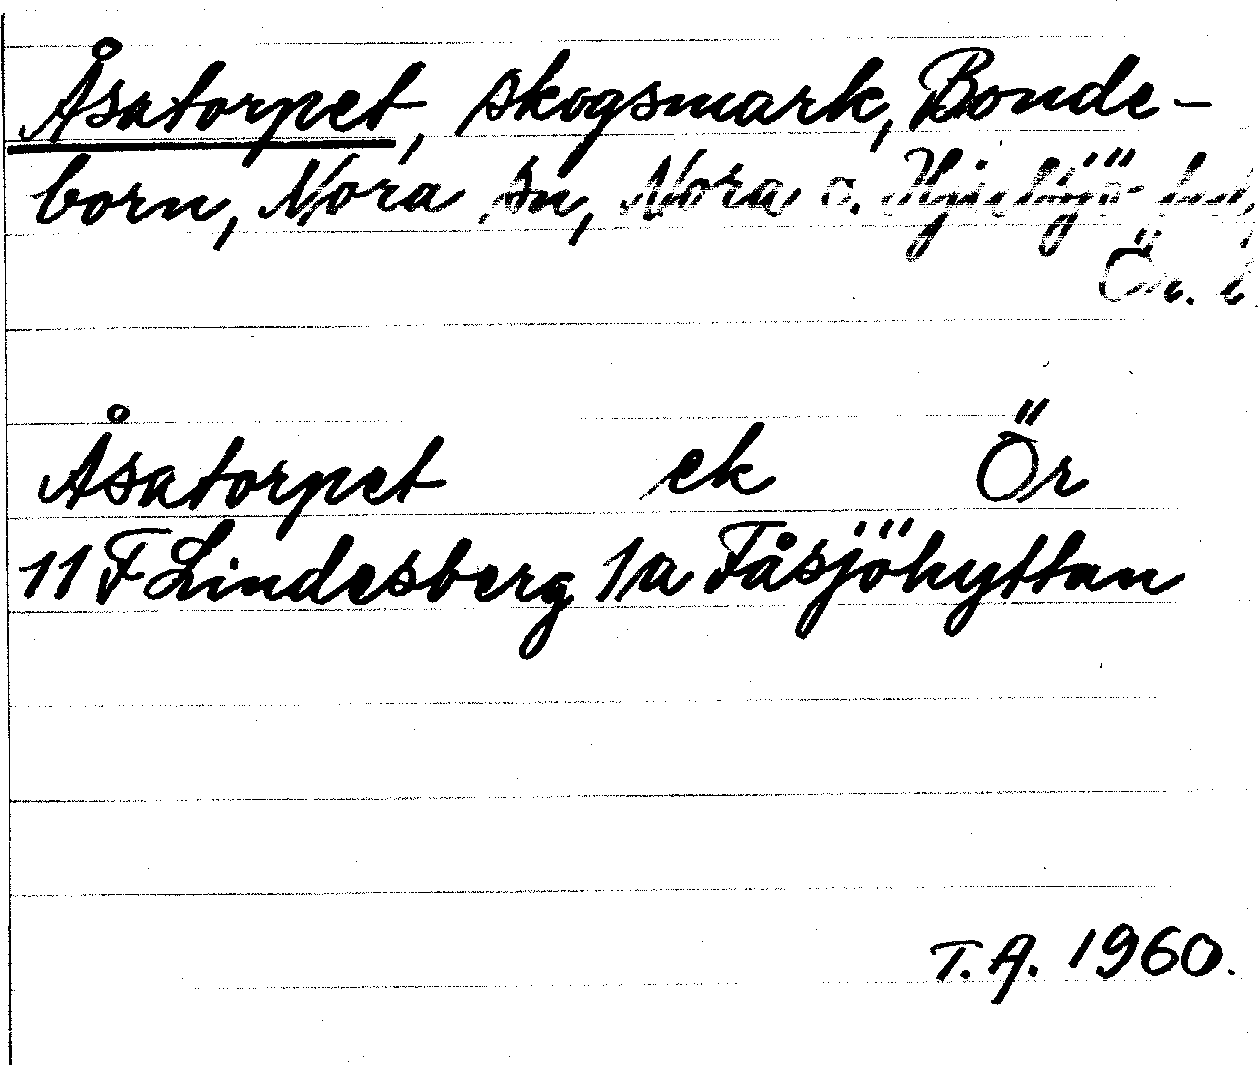 Åsatorpet, skogsmark, Bonde-
born, Nora sn, Nora o. Hjulsjö
Ör. l.
Åsatorpet ek Ör
11 F Lindesberg 1a Fåsjöhyttan
T.A. 1960.